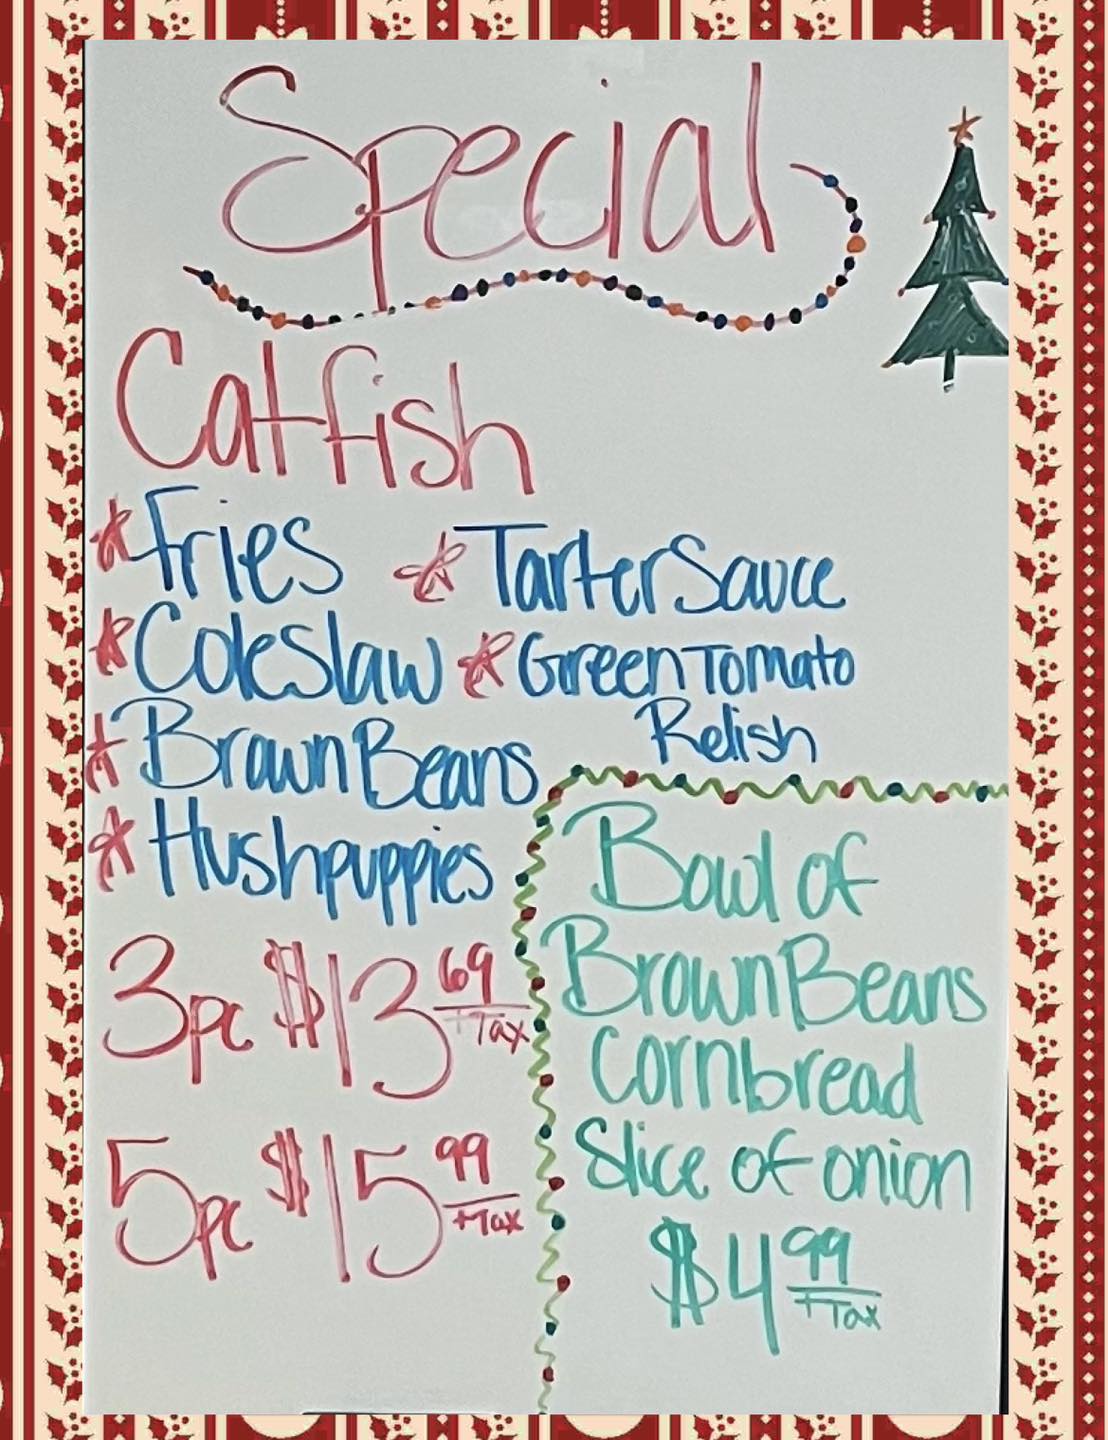 Special
Catfish
* Fries * Tarter Sauce
* Coleslaw * Green Tomato
Relish
* Brown Beans
* Hushpuppies
3pc $13 69 +Tax
5pc $15 99 +Tax
Bowl of
Brown Beans
Cornbread
Slice of onion
$4 99 +Tax